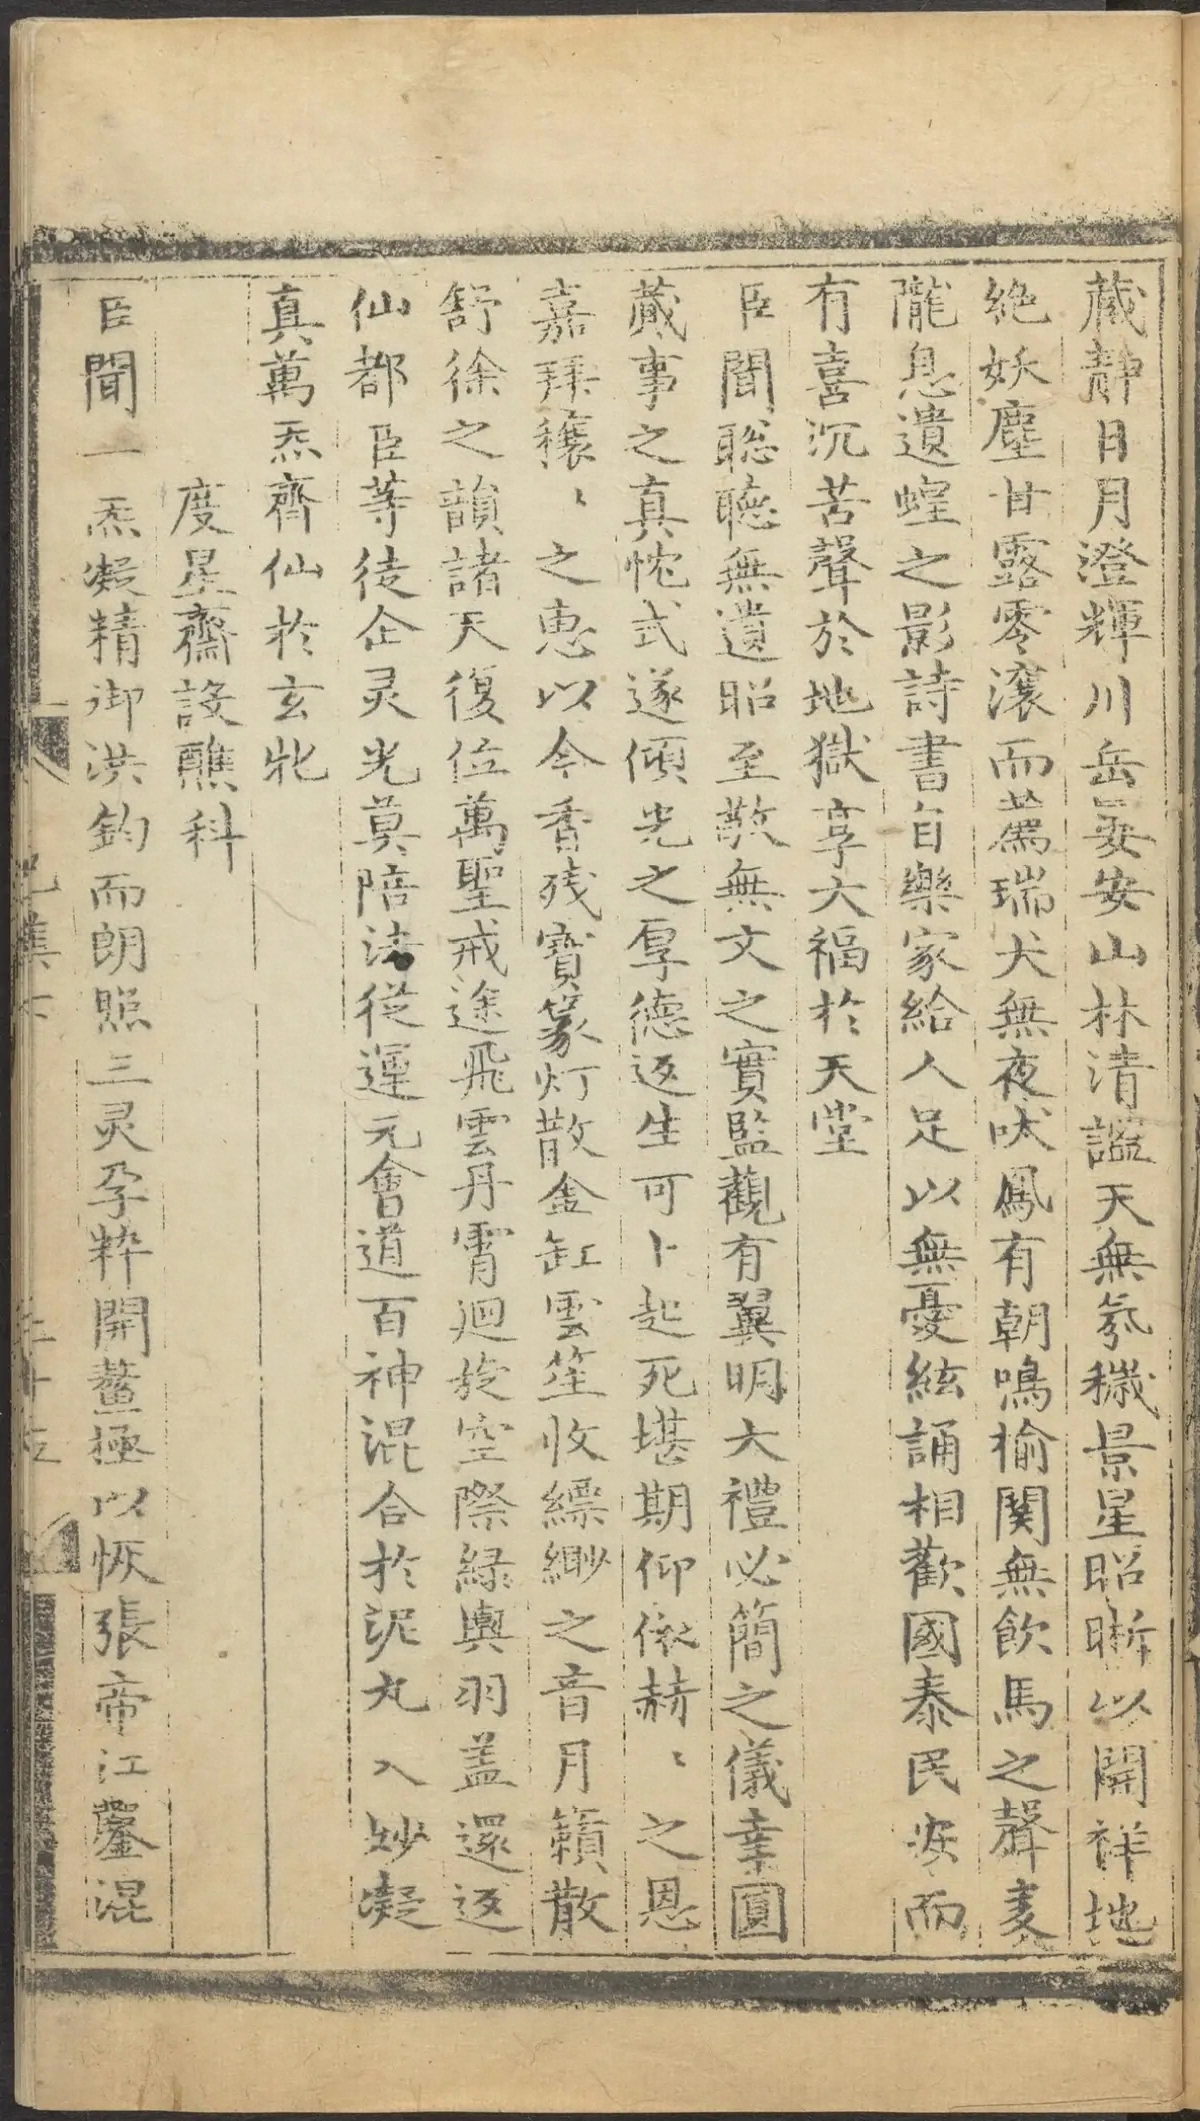 藏靜日月澄輝川岳晏安山林清謐天無氛穢景星昭晰以開祥地
絶妖塵甘露零瀼而薦瑞犬無夜吠鳳有朝鳴榆関無飲馬之聲麦
隴息遺蝗之影詩書自樂家給人足以無憂絃誦相歡國泰民安而
有喜沉苦聲於地獄享大福於天堂
臣聞聡聴無遺昭至敬無文之實監觀有翼明大禮必簡之儀幸圓
蕆事之真忱式遂傾光之厚德返生可卜起死堪期仰依赫〻之恩
嘉拜穰〻之惠以今香残寳篆灯散金缸雲笙收縹緲之音月籟散
舒徐之韻諸天復位萬聖戒途飛雲丹霄迴旋空際緑輿羽盖還返
仙都臣等徒企灵光莫陪法従運元會道百神混合於泥丸入妙凝
真萬炁齊仙於玄牝
度星齋設醮科
臣聞一炁凝精御洪鈞而朗照三灵孕粹開鰲極以恢張帝江鑿混